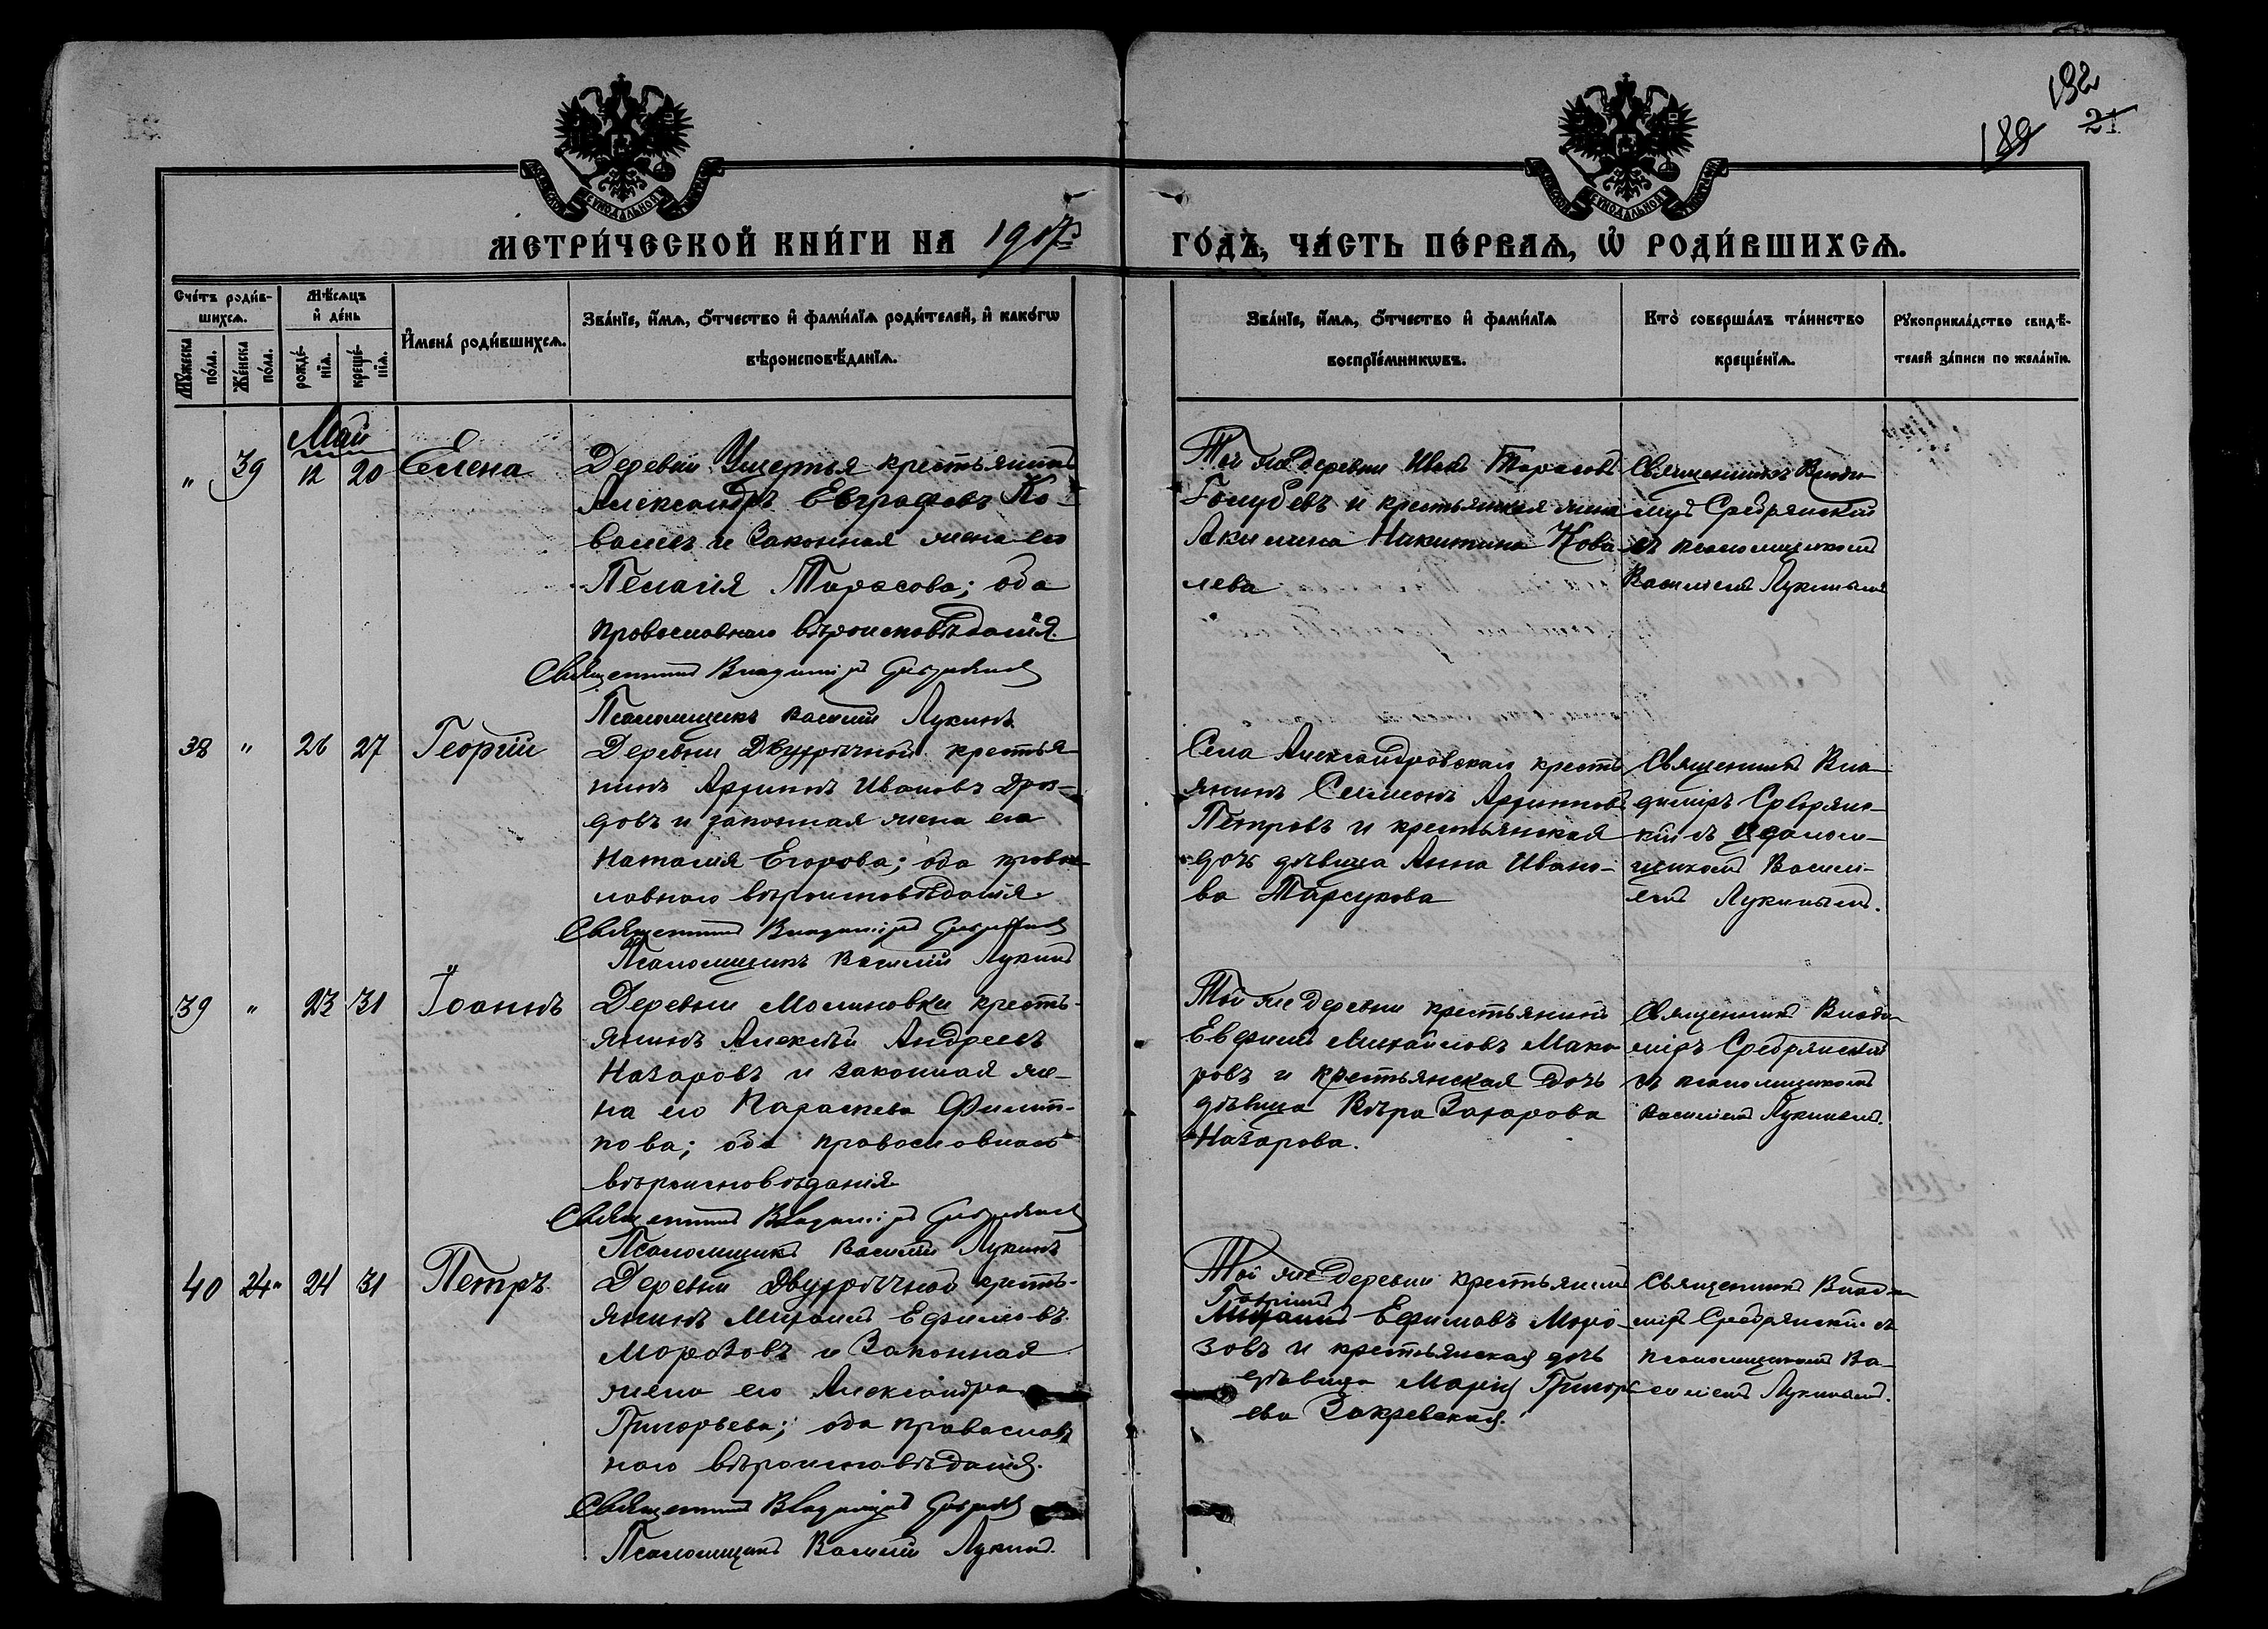 192
189 21
МЕТРИ́ЧЕСКОЙ КНИ́ГИ НА 1917й
ГО́ДЪ, ЧА́СТЬ ПЕ́РВАѦ, Ѡ҆ РОДИ́ВШИХСѦ.
Сче́тъ роди́в-
шихсѧ.
Мѣ́сѧцъ
и҆ де́нь
Мꙋ́жеска по́ла.
Же́нска по́ла.
рожде́-
нїѧ.
креще́-
нїѧ.
И҆мена̀ роди́вшихсѧ.
Зва́нїе, и҆́мѧ, ѻ҆́тчество и҆ фами́лїѧ роди́телей, и҆ како́гѡ
вѣроисповѣ́данїѧ.
Зва́нїе, и҆́мѧ, ѻ҆́тчество и҆ фами́лїѧ
воспрїе́мникѡвъ.
Кто̀ соверша́лъ та́инство
креще́нїѧ.
Рꙋкоприкла́дство свидѣ́-
телей за́писи по жела́нїю.
Май
" 39 12 20 Елена
Деревни Ущерпья крестьянинъ
Александръ Евграфовъ Ко-
валевъ и законная жена его
Пелагія Тарасова; оба
православнаго вѣроисповѣданія.
Священникъ Владиміръ Сребрянскій
Псаломщикъ Василій Лукинъ
Той же деревни Иванъ Тарасовъ
Голубевъ и крестьянская жена
Акилина Никитина Кова-
лева
Священникъ Влади-
міръ Сребрянскій
съ псаломщикомъ
Василіемъ Лукинымъ
38 " 26 27 Георгій
Деревни Двурѣчной крестья-
нинъ Архипъ Ивановъ Дроз-
довъ и законная жена его
Наталія Егорова; оба право-
славнаго вѣроисповѣданія
Священникъ Владиміръ Сребрянскій
Псаломщикъ Василій Лукинъ
Села Александровскаго кресть-
янинъ Симеонъ Архиповъ
Петровъ и крестьянская
дочь дѣвица Анна Ивано-
ва Тарсукова
Священникъ Вла-
диміръ Сребрянс-
кій съ псалом-
щикомъ Васил-
емъ Лукинымъ.
39 " 23 31 Іоаннъ
Деревни Малиновки кресть-
янинъ Алексѣй Андреевъ
Назаровъ и законная же-
на его Параскева Филип-
пова; оба православнаго
вѣроисповѣданія
Священникъ Владиміръ Сребрянскій
Псаломщикъ Василій Лукинъ
Той же деревни крестьянинъ
Евфимій Михайловъ Мака-
ровъ и крестьянская дочь
дѣвица Вѣра Захарова
Назарова.
Священникъ Влади-
міръ Сребрянскій
съ псаломщикомъ
Василіемъ Лукинымъ.
40 24" 24 31 Петръ
Деревни Двурѣчной кресть-
янинъ Михаилъ Ефимовъ
Морозовъ и законная
жена его Александра
Григорьева; оба православ-
наго вѣроисповѣданія.
Священникъ Владиміръ Сребрянскій
Псаломщикъ Василій Лукинъ.
Той же деревни крестьянинъ
Михаилъ Ефимовъ Моро-
зовъ и крестьянская дочь
дѣвица Марія Григорь-
ева Закревская.
Священникъ Влади-
міръ Сребрянскій съ
псаломщикомъ Ва-
силіемъ Лукинымъ.